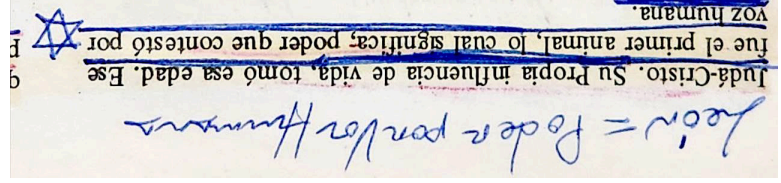 León = Poder por Voz Humana
Judá-Cristo. Su Propia influencia de vida, tomó esa edad. Ese
fue el primer animal, lo cual significa, poder que contestó por
voz humana.